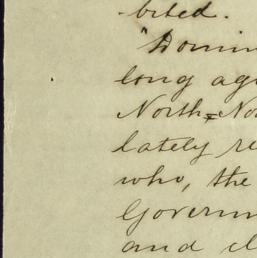 bited.
"Domin
long ag
North-No
lately re
who, the
Governm
and